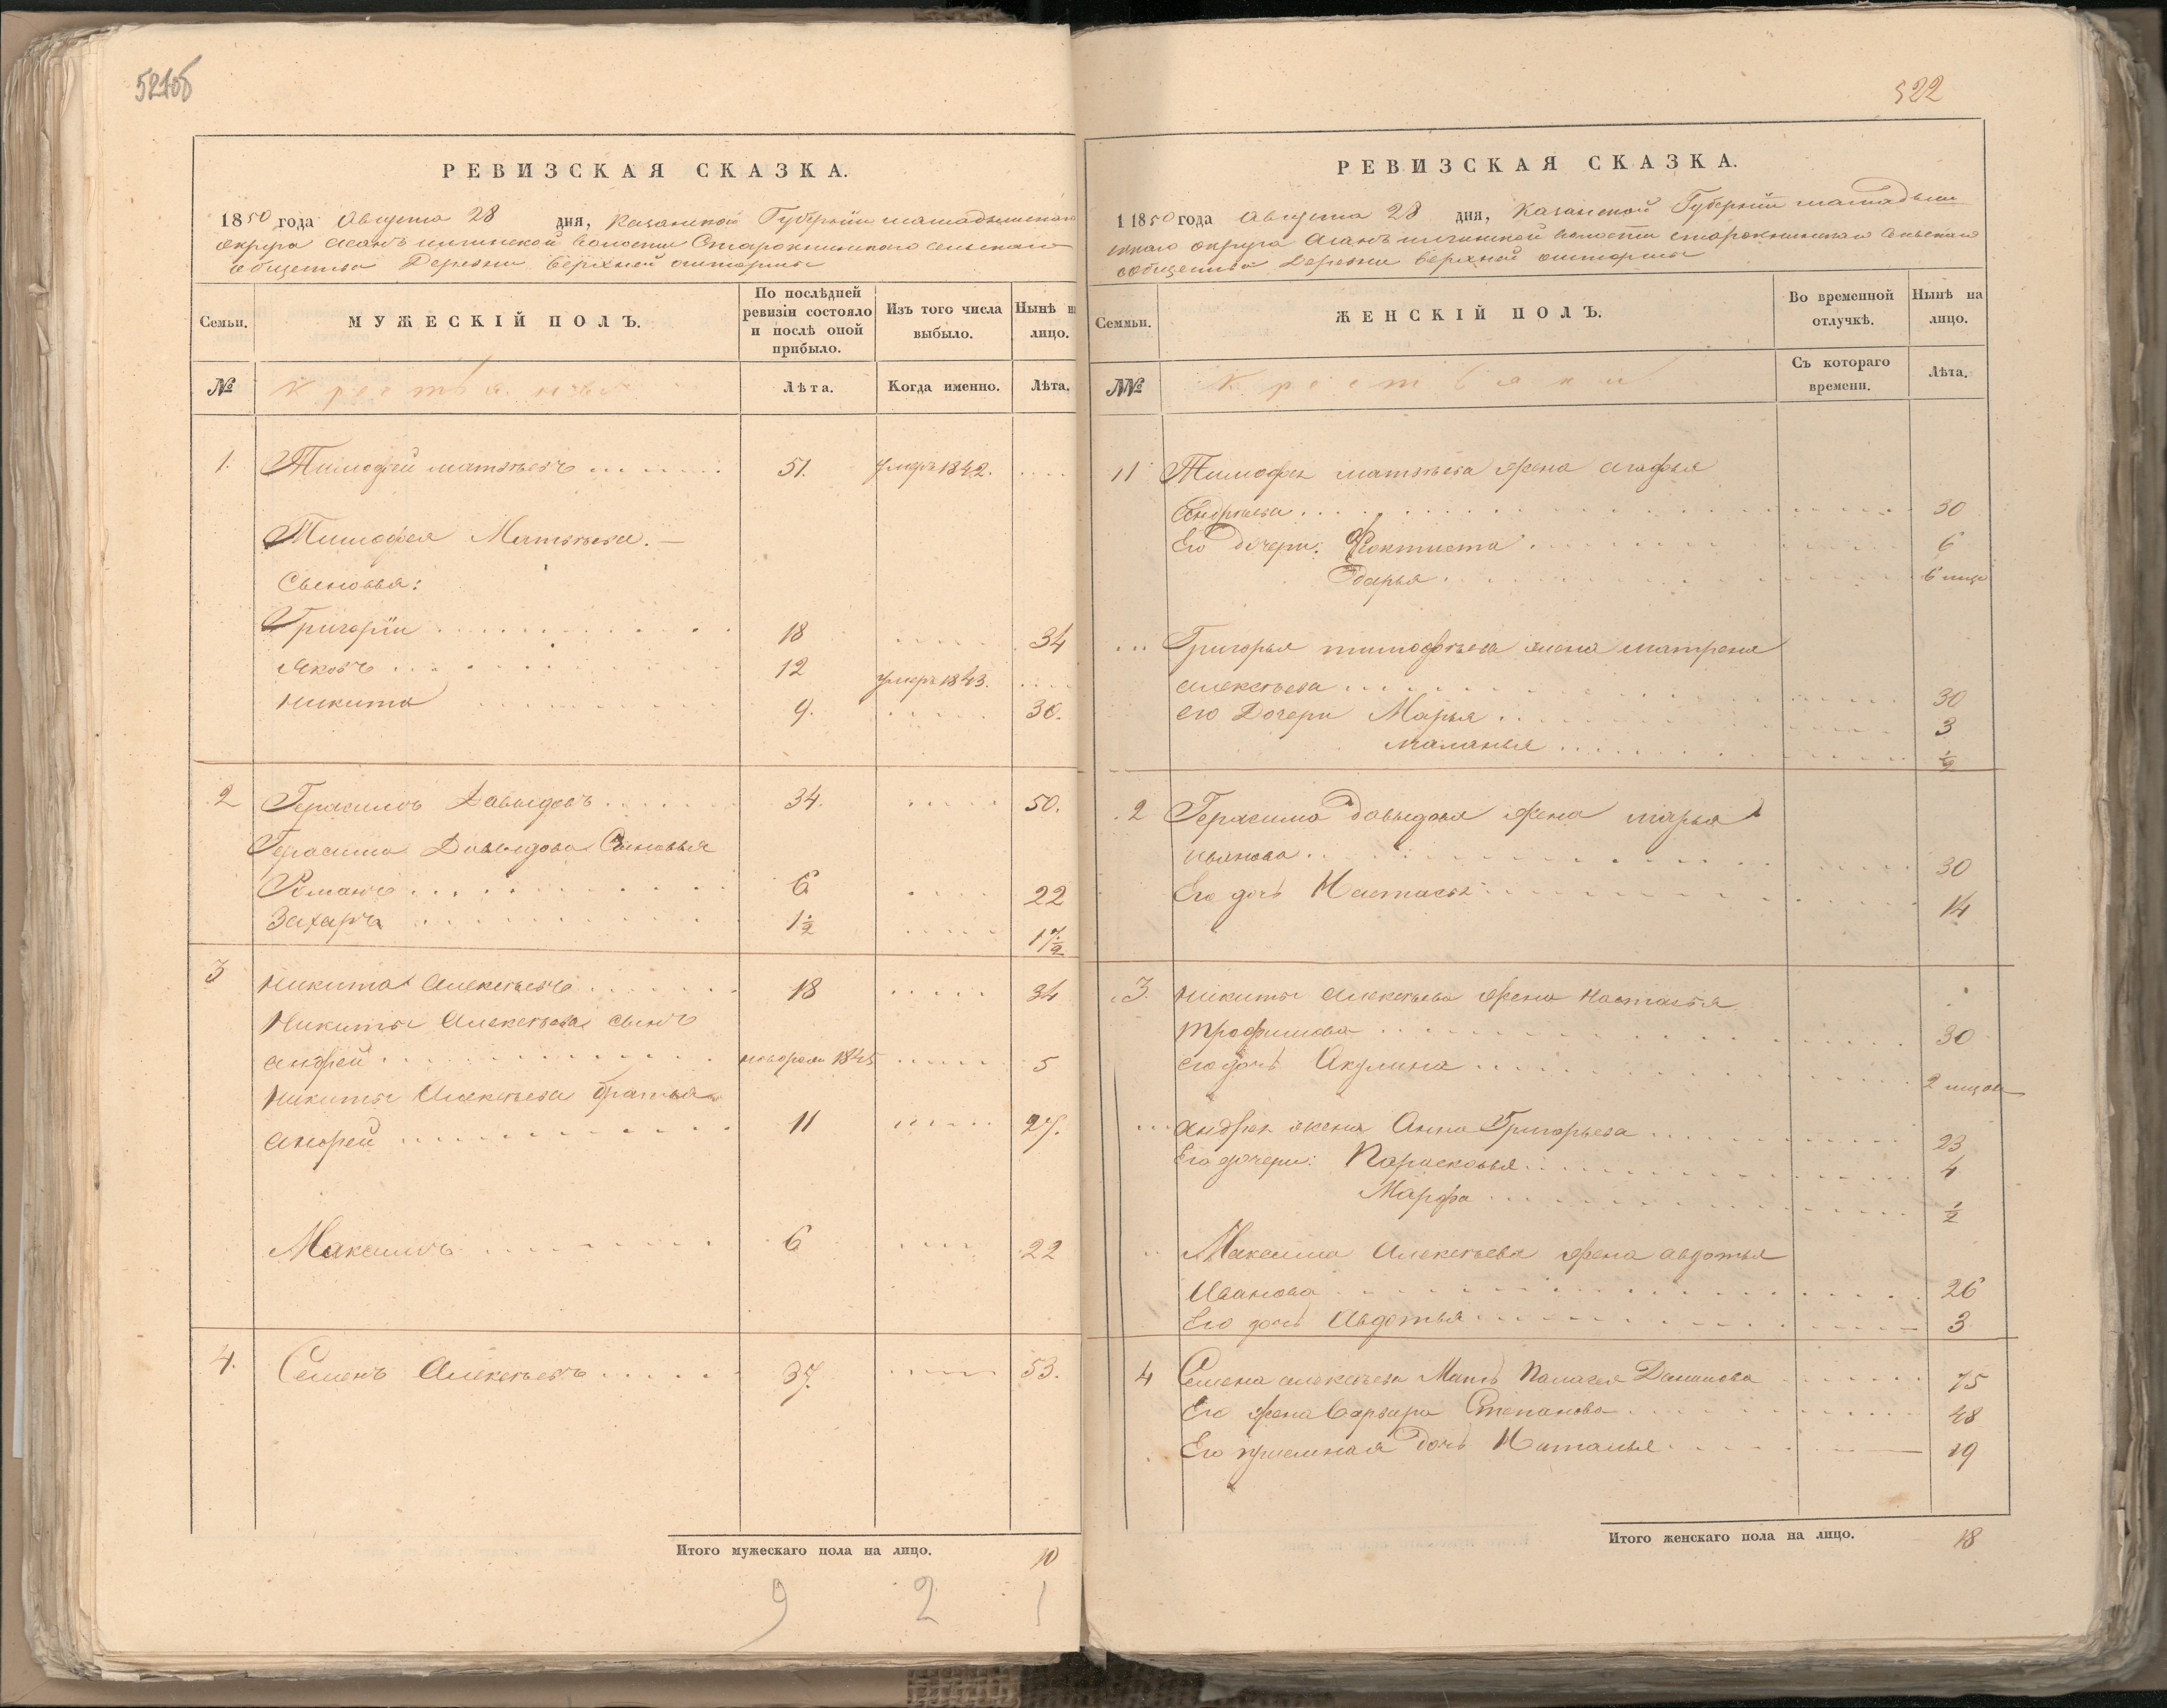 521об
РЕВИЗСКАЯ СКАЗКА.
1850 года Августа 28 дня, Казанской Губернии мамадышскаго
округа Асанъ илгинской волости Старокнинскаго сельскаго
общества Деревни верхней оштормы
Семьи.
МУЖЕСКІЙ ПОЛЪ.
По послѣдней
ревизіи состояло
и послѣ оной
прибыло.
Изъ того числа
выбыло.
Нынѣ н
лицо.
№
Крестьяне
Лѣта.
Когда именно.
Лѣта.
1. Тимофей матвѣевъ . . . . . . 51. умеръ 1842. . . . .
Тимофея Матвѣева. —
Сыновья:
Григорій . . . . . . . . . 18 . . . . . 34
Яковъ . . . . . . . . . 12 умеръ 1843. . . . .
никита . . . . . . . . 9. . . . . . 30.
2 Герасимъ Давыдовъ . . . . . 34. . . . . . 50.
Герасима Давыдова Сыновья
Романъ . . . . . . . . . 6 . . . . 22
Захаръ . . . . . . . . 1½ . . . . . 17½
3 никита Алексѣевъ . . . . . . 18 . . . . . 34
Никиты Алексѣева сынъ
андрей . . . . . . . . . . новорож 1845 . . . . . 5
никиты Алексѣева братья
андрей . . . . . . . . . . 11 . . . . . 27.
Максимъ . . . . . . . . 6 . . . . 22
4. Семенъ Алексѣевъ . . . . . 37. . . . . . 53.
Итого мужескаго пола на лицо. 10
9 2 1
522
РЕВИЗСКАЯ СКАЗКА.
1850 года Августа 28 дня, Казанской Губерніи мамадыш
скаго округа Асанъ илгинской волости старокнинскаго сельскаго
общества Деревни верхней оштормы
Семьи.
ЖЕНСКІЙ ПОЛЪ.
Во временной
отлучкѣ.
Нынѣ на
лицо.
№№
Крестьянки
Съ котораго
времени.
Лѣта.
1 Тимофея матвѣева жена агафья
Андреева . . . . . . . . . . . . . 30
Его дочери: Фёоктиста . . . . . . . . 6
Дарья . . . . . . . . . .
. . . Григорья тимофѣева жена матрена
алексѣева . . . . . . . . . . . . 30
его Дочери Марья . . . . . . . . 3
маланья . . . . . . . . ½
2 Герасима Давыдова жена марья
иванова . . . . . . . . . . . . 30
Его дочь Настасья . . . . . . . . . 14
3. никиты алексѣева жена настасья
трофимова . . . . . . . . . . . 30
его дочь Акулина . . . . . . . . . 2
. . . андрея жена Анна Григорьева . . . . . . . . 23
Его дочери: Парасковья . . . . . . . . 4
Марфа . . . . . . . . . ½
Максима Алексѣева жена авдотья
Иванова . . . . . . . . . . . . 26
Его дочь Авдотья . . . . . . . . . 3
4 Семена алексѣева Мать Палагея Данилова . . . . . . 75
Его жена варвара Степанова . . . . . . . . 48
Его приемная дочь Наталья . . . . . . 19
Итого женскаго пола на лицо. 18